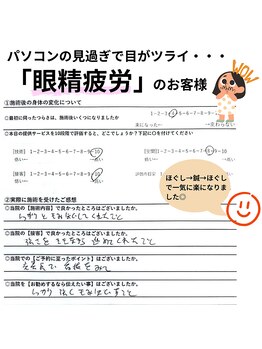 パソコンの見過ぎで目がツライ・・・
「眼精疲労」のお客様
WOW
①施術後の身体の変化について
◎最初に伺ったつらさは、施術後いくつになりましたか
1-2-3-4-5-6-7-8-9-
楽になった 変わらない
◎本日の提供サービスを10段階で評価すると、どこでしょうか？下記に○を付けてください
【技術】 1-2-3-4-5-6-7-8-9-10
悪い 良い
【空間】 1-2-3-4-5-6-7-8-
悪い
【接客】 1-2-3-4-5-6-7-8-9-10
悪い 良い
ほぐし→鍼→ほぐし
で一気に楽になりま
した◎
②実際に施術を受けたご感想
◎当院の【施術内容】で良かったところはございましたか。
しっかりともみほぐしてくれたこと
◎当院の【接客】で良かったところはございましたか。
◎当院での【ご予約に至ったポイント】はございましたか。
◎当院を【お勧めするなら伝えたい事】はございましたか。